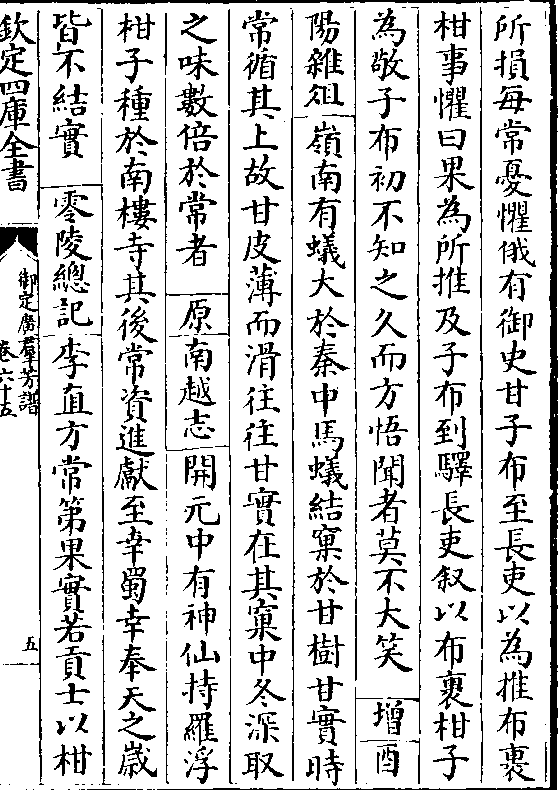 所損每常憂懼俄有御史甘子布至長吏以為推布裹
柑事懼曰果為所推及子布到驛長吏敘以布裹柑子
為敬子布初不知之久而方悟聞者莫不大笑 增酉
陽雜俎 嶺南有蟻大於秦中馬蟻結窠於甘樹甘實時
常循其上故甘皮薄而滑往往甘實在其窠中冬深取
之味數倍於常者 原南越志 開元中有神仙持羅浮
柑子種於南樓寺其後常資進獻至幸蜀幸奉天之歲
皆不結實 零陵總記 李直方常第果實若貢士以柑
欽定四庫全書
御定廣羣芳譜
卷六十五
五